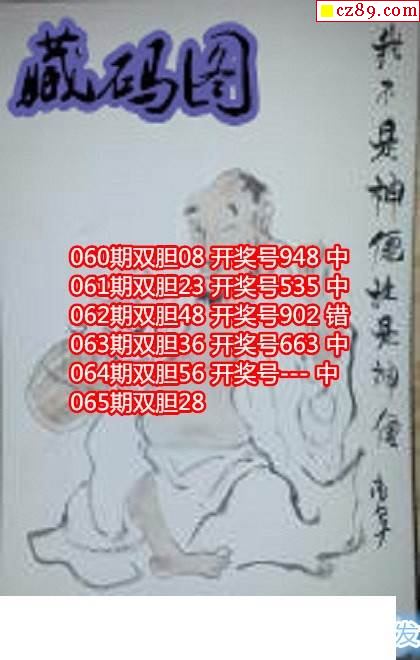 cz89.com
藏码图
我不是神便
060期双胆08 开奖号948 中
061期双胆23 开奖号535 中
062期双胆48 开奖号902 错
063期双胆36 开奖号663 中
064期双胆56 开奖号--- 中
065期双胆28
发